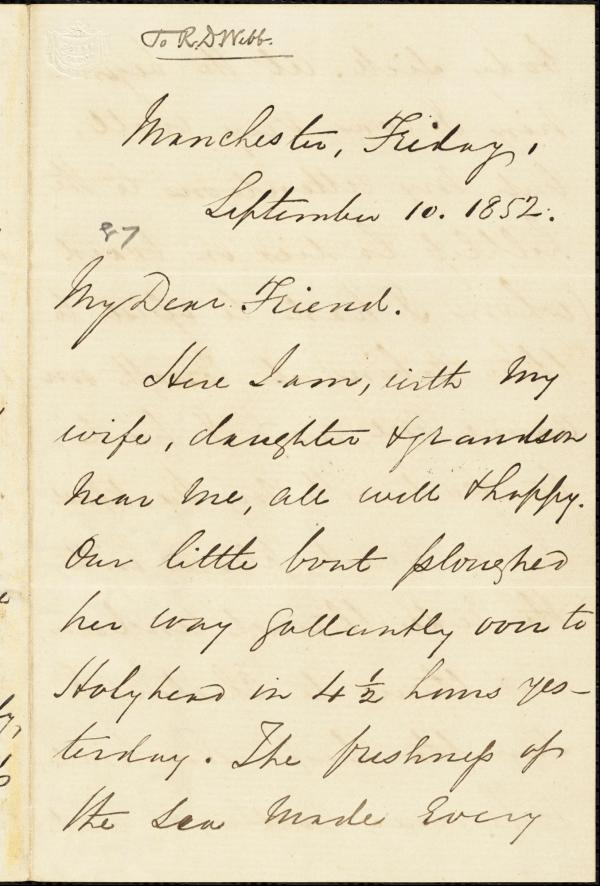 To R. D. Webb.
Manchester, Friday,
September 10. 1852.
My Dear Friend.
Here I am, with my
wife, daughter & grandson
near me, all well & happy.
Our little boat ploughed
her way gallantly over to
Holyhead in 4 1/2 hours yes-
terday. The freshness of
the sea made every